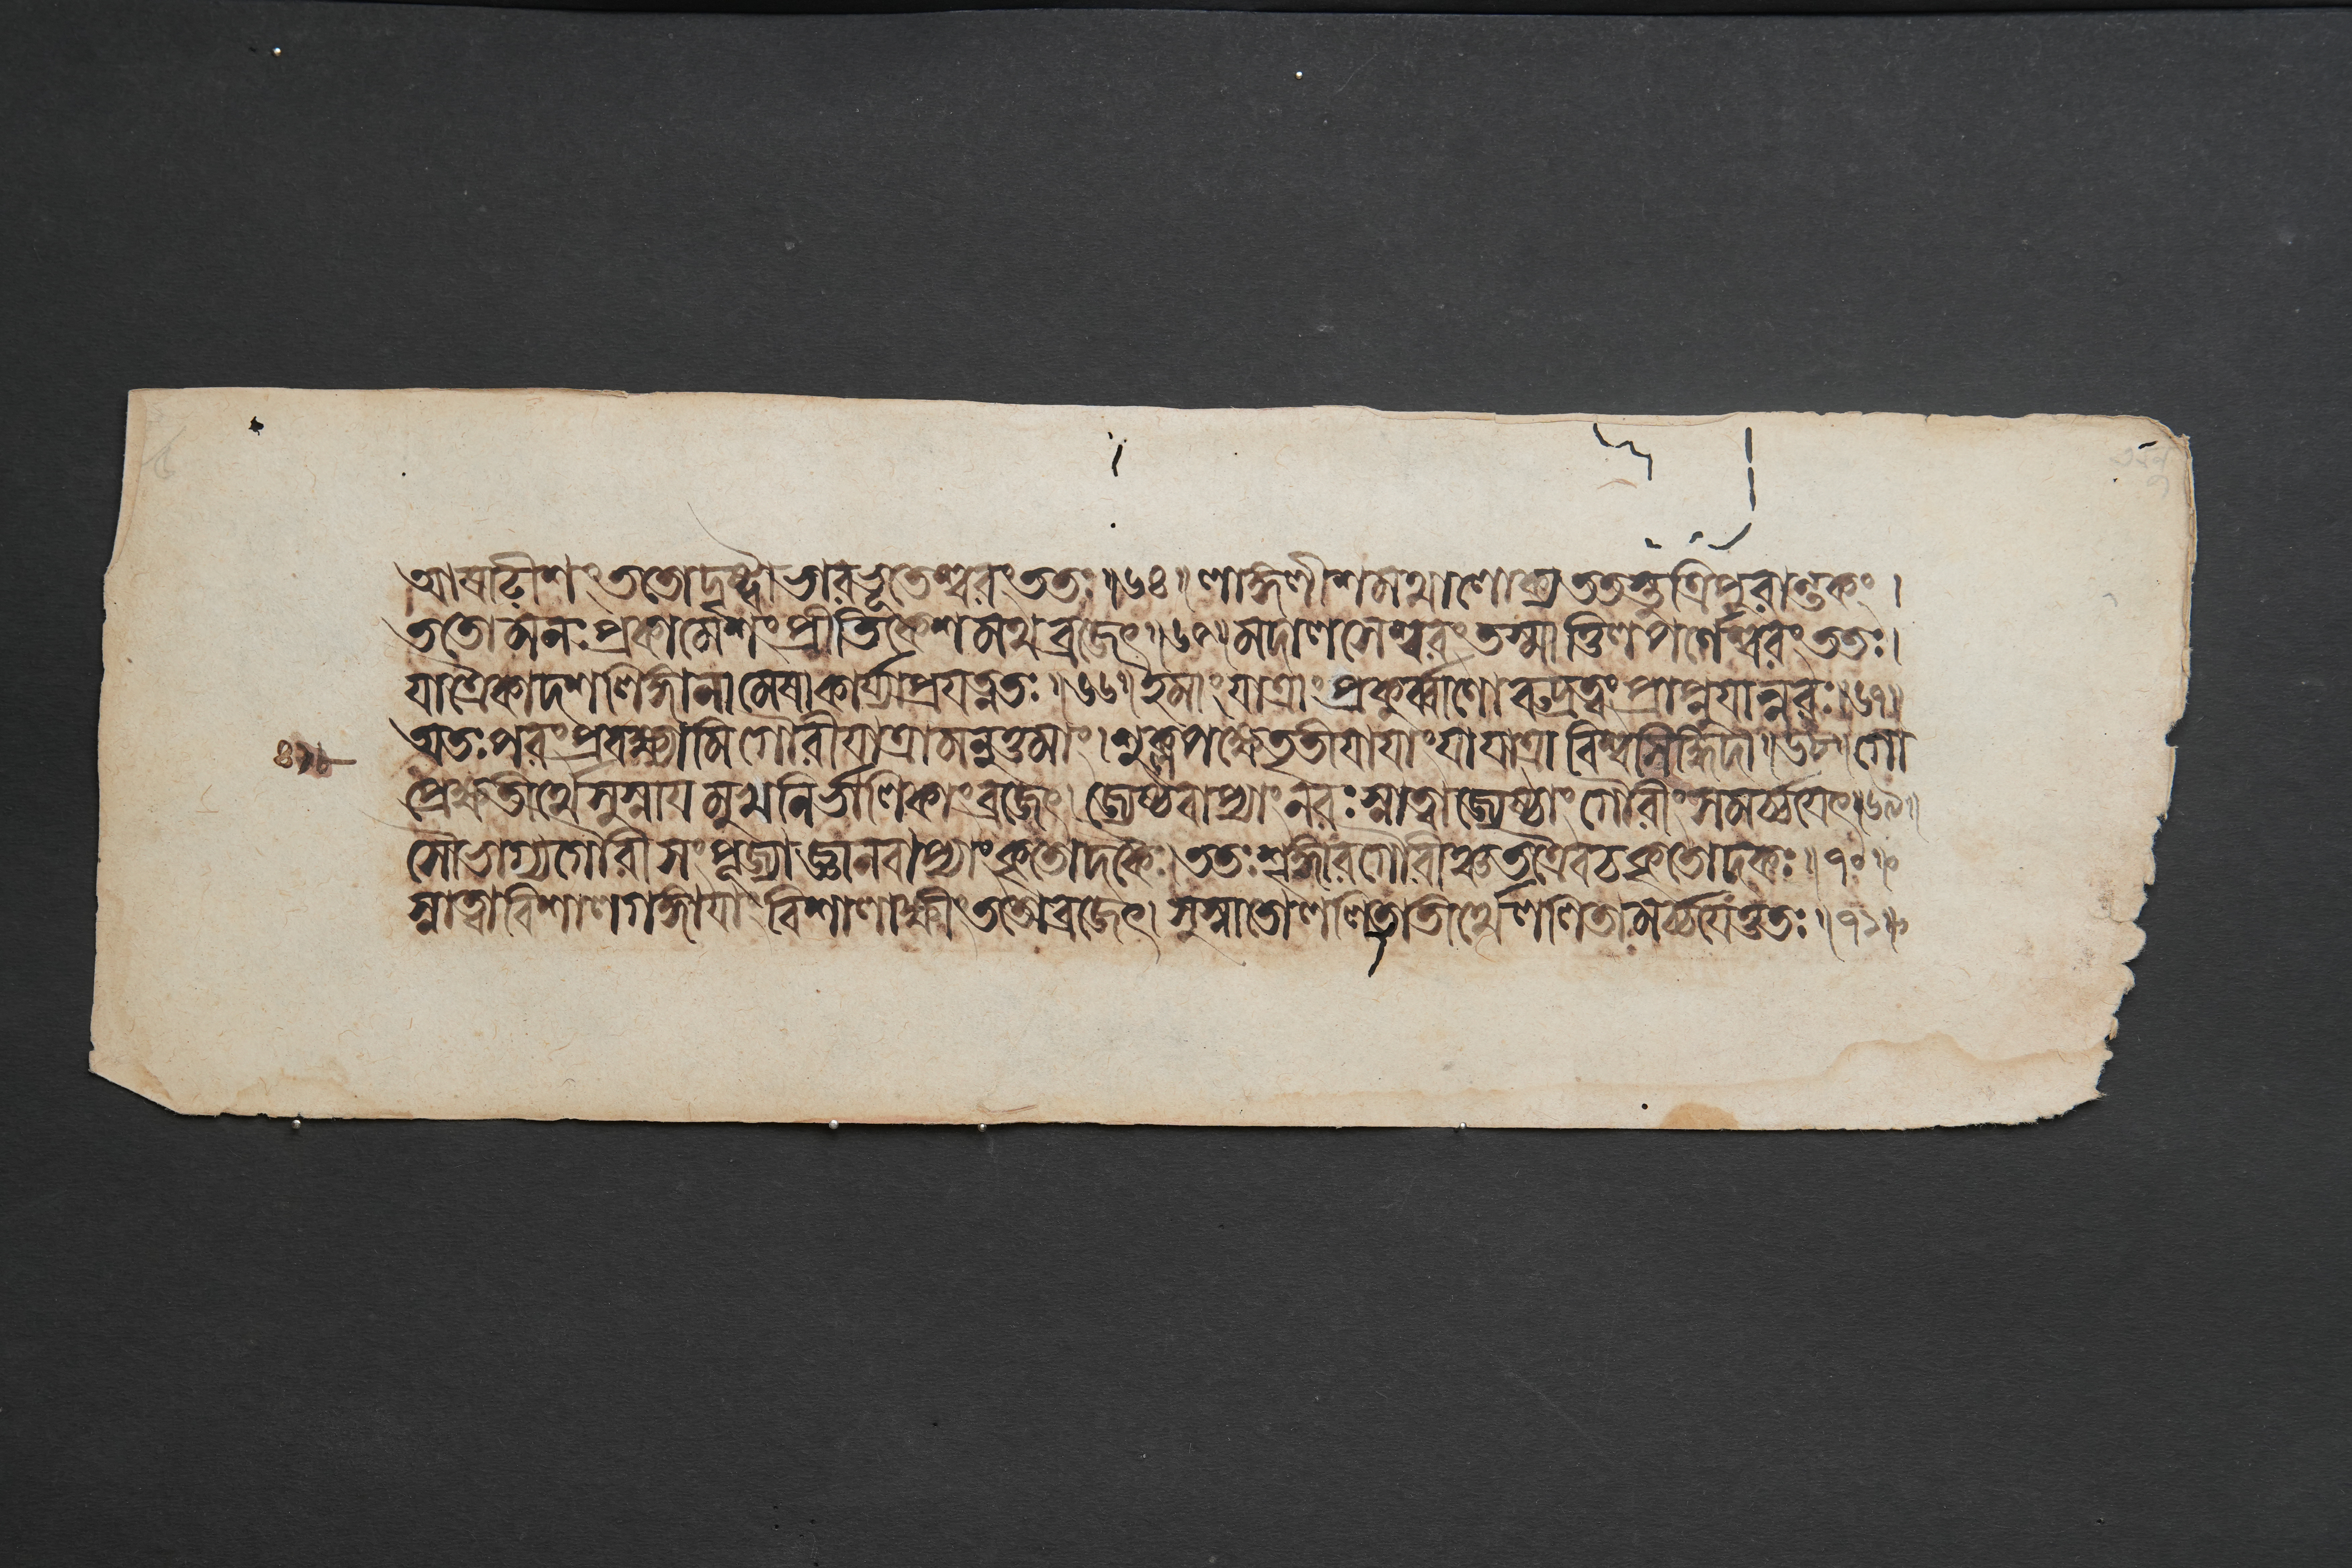 আষাঢ়ীশং ততোদৃষ্ট্বা ভারভূতেশ্বরং ততঃ॥৬৪॥লাঙ্গলীশমথালোক্য ততস্তুত্রিপুরান্তকং।
ততোমনঃপ্রকামেশংপ্রীতিকেশমথব্রজেৎ॥৬৫॥মদালসেশ্বরং তস্মাত্তিলপর্ণেশ্বরং ততঃ।
যাত্রৈকাদশলিঙ্গানামেষাকার্য্যাপ্রযত্নতঃ॥৬৬॥ইমাং যাত্রাং প্রকুর্ব্বাণোরুদ্রত্বং প্রাপ্নুযান্নরঃ॥৬৭॥
অতঃপরংপ্রবক্ষ্যামি গৌরীযাত্রামনুত্তমাং।শুক্লপক্ষেতৃতীযাযাং যাযাত্রা বিশ্বসিদ্ধিদা॥৬৮॥গো
প্রেক্ষতীর্থেসুস্নায মুখনির্ভালিকাংব্রজেৎ।জ্যেষ্ঠবাপ্যাং নরঃস্নাত্বাজ্যেষ্ঠাং গৌরীং সমর্চ্চযেৎ॥৬৯॥
সৌভাগ্যগৌরী সংপূজ্যাজ্ঞানবাপ্যাং কৃতোদকৈঃ।ততঃশৃঙ্গারগৌরীঞ্চতত্রৈবচকৃতোদকঃ॥৭০॥
স্নাত্বাবিশালগঙ্গাযাং বিশালাক্ষীং ততোব্রজেৎ।সুস্নাতোললিতাতীর্থেললিতামর্চ্চযেত্ততঃ॥৭১॥